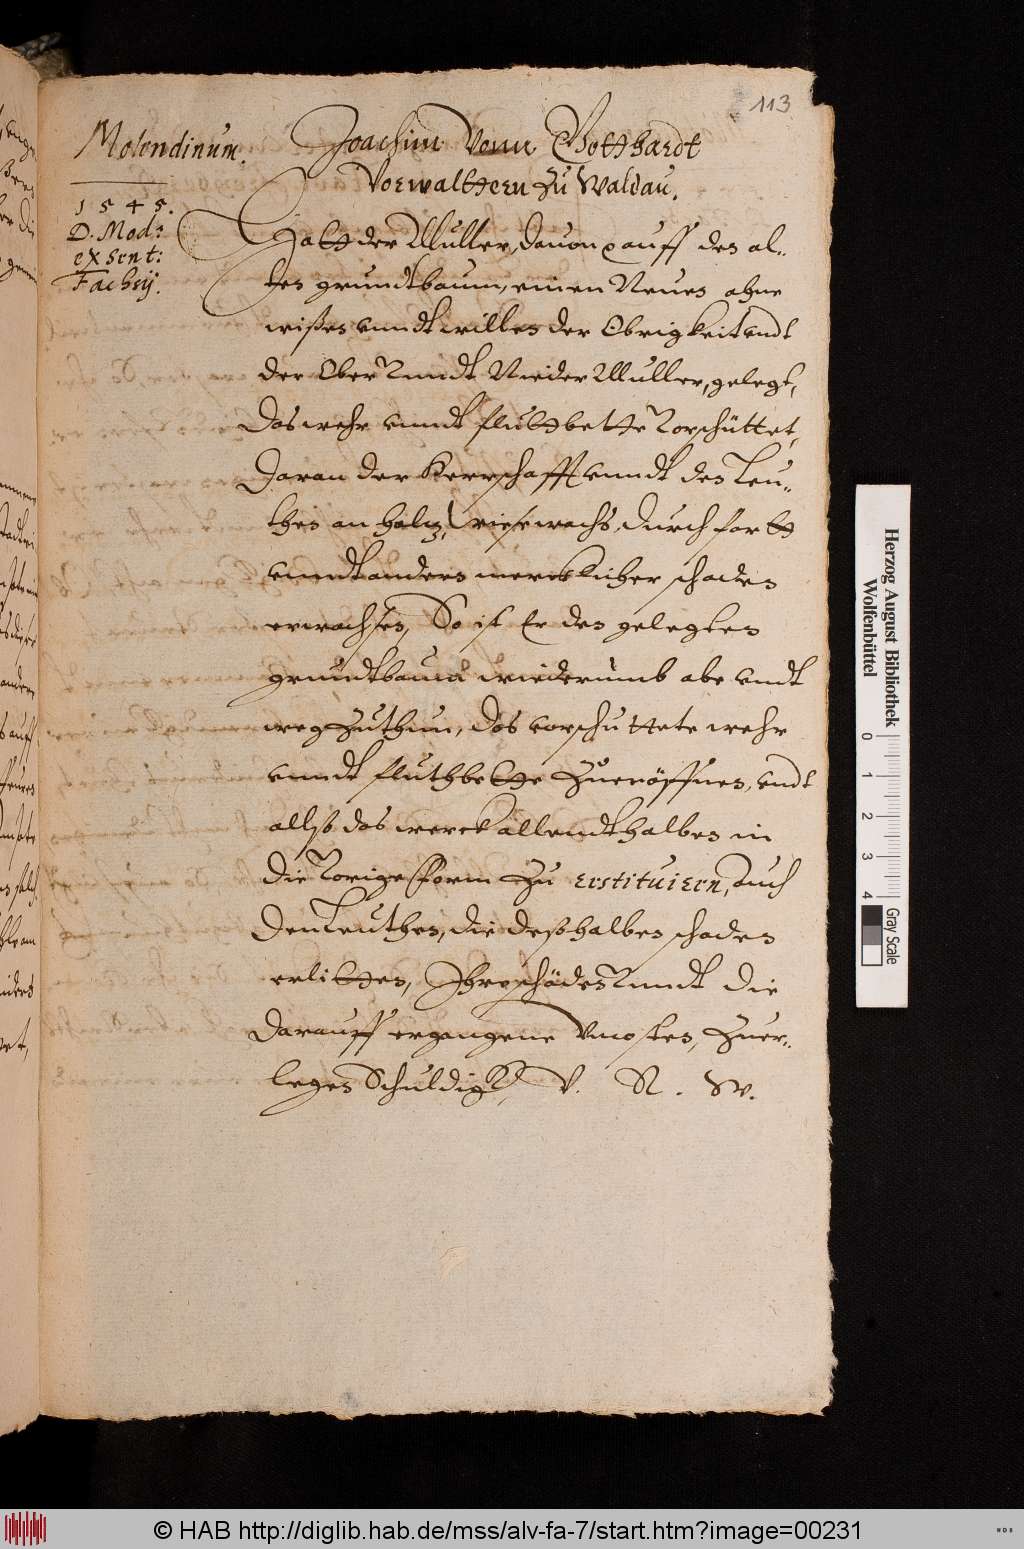 113
Molendinum.
1545.
D. Mod:
ex sent:
Fachsij.
Joachim Vonn Gotthardt
Vorwalttern Zu Waldau.
Hatt der Muller, dauon auff den al-
ten grundtbaum, einen Neuen ahne
wißen unndt willen der Obrigkeit undt
der Ober Vnndt Nieder Muller, gelegt,
Das wehr unndt fluttbette Vorschüttet,
Daran der Herrschafft unndt den Leu-
then an holtz, wiesewachs, durch fortt
unndt andern mercklicher schaden
erwachsen, So ist Er den gelegten
grundtbaum wiederumb abe undt
weg Zuthun, das vorschuttete wehr
unndt fluthbette Zueröffnen, undt
allß das werck allendthalben in
die Vorige Form Zu restituiern, auch
Den Leuthen, die deßhalben schaden
erlitten, Ihre schäden Vnndt die
darauff ergangene Vncosten, Zuer-
legen Schuldigk, V. R. W.
Herzog August Bibliothek
Wolfenbüttel
0 1 2 3 4
Gray Scale
© HAB http://diglib.hab.de/mss/alv-fa-7/start.htm?image=00231